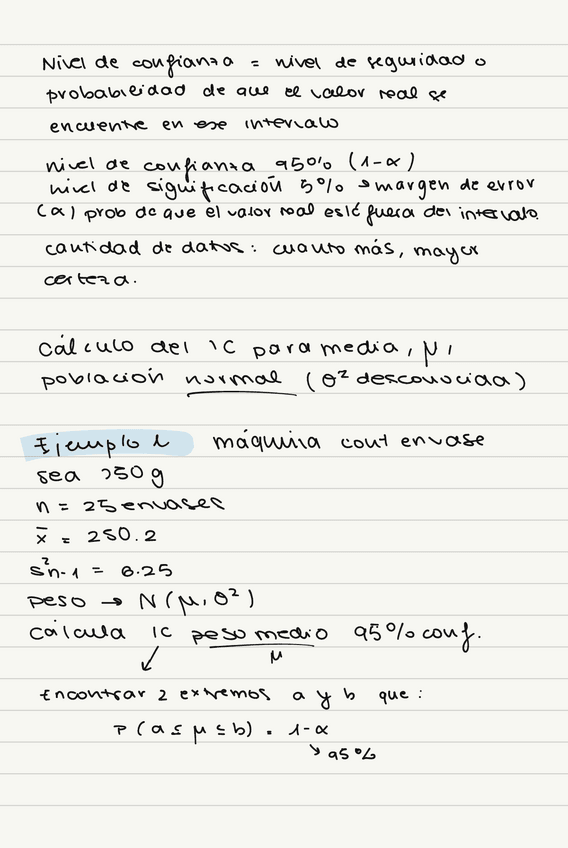 Nivel de confianza = nivel de seguridad o
probabilidad de que el valor real se
encuentre en ese intervalo
nivel de confianza 95% (1-α)
nivel de significación 5% → margen de error
(α) prob de que el valor real esté fuera del intervalo.
cantidad de datos: cuanto más, mayor
certeza.
Cálculo del IC para media, μ,
población normal (σ² desconocida)
Ejemplo 1 máquina cont envase
sea 250g
n = 25 envases
x̄ = 250.2
s²n-1 = 6.25
peso → N(μ, σ²)
Calcula IC peso medio 95% conf.
μ
Encontrar 2 extremos a y b que:
P(a ≤ μ ≤ b) = 1-α
↘ 95%